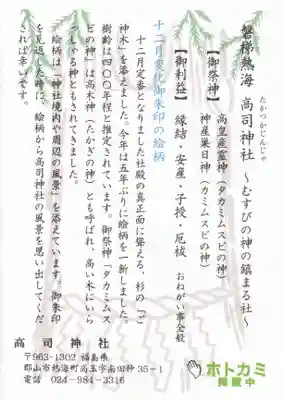 たかつかじんじゃ
磐梯熱海 高司神社 ～むすびの神の鎮まる社～
【御祭神】 高皇産霊神（タカミムスビの神）
神産巣日神（カミムスビの神）
【御利益】 縁結・安産・子授・厄祓 おねがい事全般
十二月変化御朱印の絵柄
十二月定番となりました社殿の真正面に聳える、杉の「ご
神木」を添えました。今年は五年ぶりに絵柄を一新しました。
樹齢は四〇〇年程と推定されています。御祭神「タカミムス
ビの神」は高木神（たかぎの神）とも呼ばれ、高い木にいら
っしゃる神ともされてきました。
絵柄は「神社境内や周辺の風景」を添えています。御朱印
を見返した時に、絵柄から高司神社の風景を思い出してくだ
されば幸いです。
高司神社
〒963-1302 福島県
郡山市熱海町高玉字南田神35－1
電話 024-984-3316
ホトカミ
掲載中